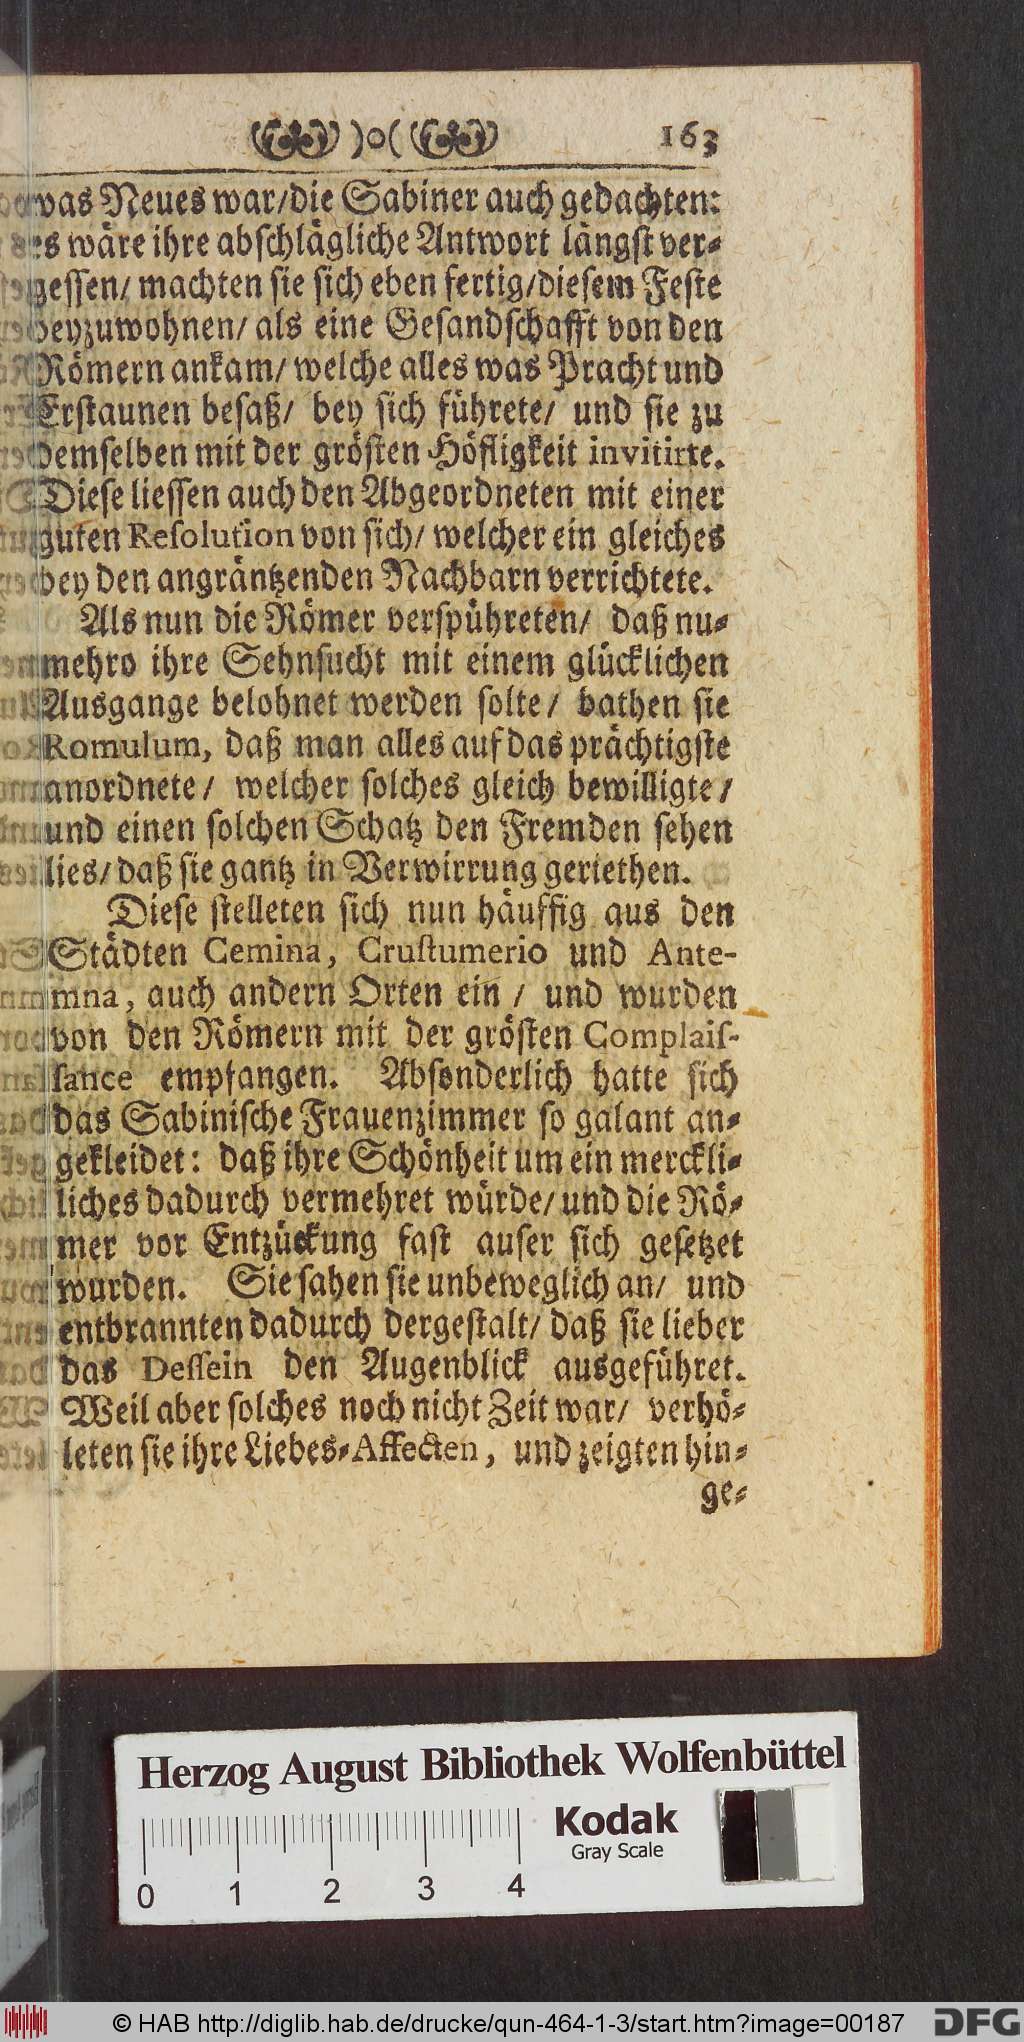 )o( 163
was Neues war/die Sabiner auch gedachten:
es wäre ihre abschlägliche Antwort längst ver⸗
gessen/ machten sie sich eben fertig/diesem Feste
beyzuwohnen/ als eine Gesandschafft von den
Römern ankam/ welche alles was Pracht und
Erstaunen besaß/ bey sich führete/ und sie zu
demselben mit der grösten Höfligkeit invitirte.
Diese liessen auch den Abgeordneten mit einer
guten Resolution von sich/ welcher ein gleiches
bey den angräntzenden Nachbarn verrichtete.
Als nun die Römer verspühreten/ daß nu⸗
mehro ihre Sehnsucht mit einem glücklichen
Ausgange belohnet werden solte/ bathen sie
Romulum, daß man alles auf das prächtigste
anordnete/ welcher solches gleich bewilligte/
und einen solchen Schatz den Fremden sehen
lies/ daß sie gantz in Verwirrung geriethen.
Diese stelleten sich nun häuffig aus den
Städten Cemina, Crustumerio und Ante-
mna, auch andern Orten ein / und wurden
von den Römern mit der grösten Complais-
sance empfangen. Absonderlich hatte sich
das Sabinische Frauenzimmer so galant an⸗
gekleidet: daß ihre Schönheit um ein merckli⸗
liches dadurch vermehret würde/ und die Rö⸗
mer vor Entzückung fast auser sich gesetzet
wurden. Sie sahen sie unbeweglich an/ und
entbrannten dadurch dergestalt/ daß sie lieber
das Dessein den Augenblick ausgeführet.
Weil aber solches noch nicht Zeit war/ verhö⸗
leten sie ihre Liebes⸗Affecten, und zeigten hin⸗
ge⸗
Herzog August Bibliothek Wolfenbüttel
Kodak
Gray Scale
0 1 2 3 4
© HAB http://diglib.hab.de/drucke/qun-464-1-3/start.htm?image=00187 DFG